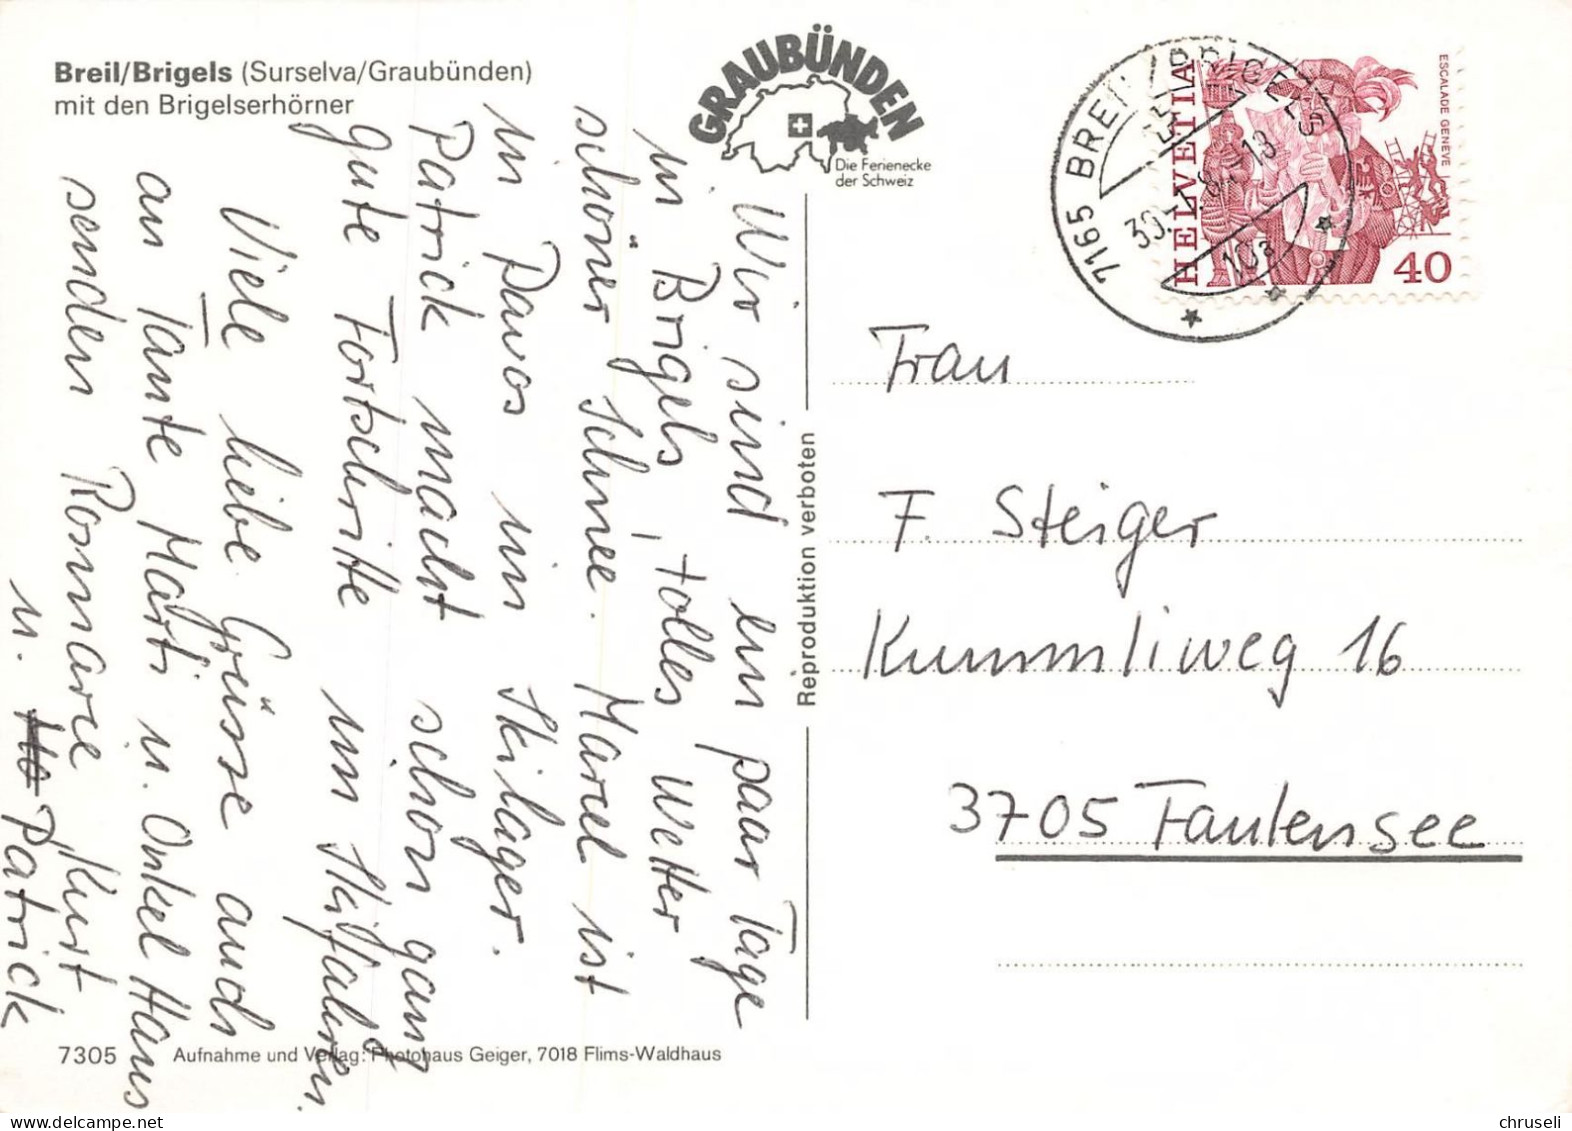 Breil/Brigels (Surselva/Graubünden)
mit den Brigelserhörner
GRAUBÜNDEN
Die Ferienecke
der Schweiz
7165 BREIL/BRIGELS
HELVETIA
ESCALADE GENEVE
40
Wir sind ein paar Tage
in Brigels, tolles Wetter
schöner Schnee. Marcel ist
in Davos im Skilager.
Patrick macht schon ganz
gute Fortschritte im Skifahren.
Viele liebe Grüsse auch
an Tante Marti u. Onkel Hans
senden Rosmarie, Kurt
u. Patrick
Reproduktion verboten
Frau
F. Steiger
Kummliweg 16
3705 Faulensee
7305 Aufnahme und Verlag: Photohaus Geiger, 7018 Flims-Waldhaus
chruseli